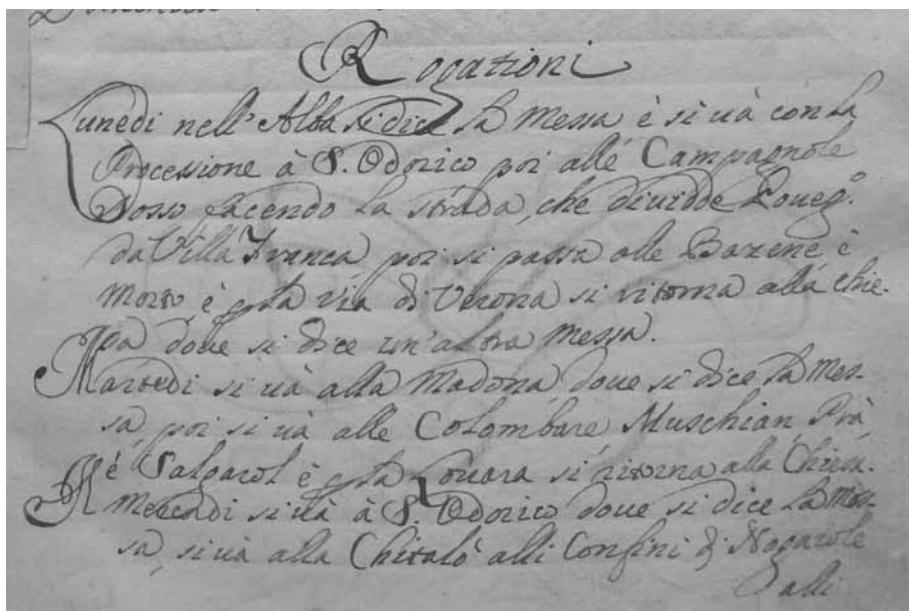 Rogationi
Lunedi nell'Alba si dice la Messa è si uà con la
Processione à S. Odorico poi allé Campagnole
Dosso facendo la strada, che diuidde Poueg.o
da Villa Franca poi si passa alle Bazene è
è la via di Verona si ritorna alla chie-
sa doue si dice un'altra Messa.
Martedi si uà alla Madona doue si dice la Mes-
sa poi si uà alle Colombare Muschian Prà
è Salgarol è si ritorna alla Chiesa.
Mercordi si uà à S. Odorico doue si dice la Mes-
sa, si uà alla alli Confini di Nogarole
alli